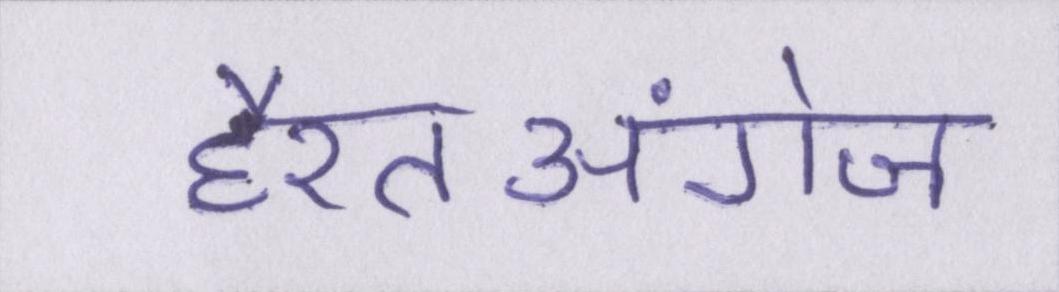 हैरतअंगेज